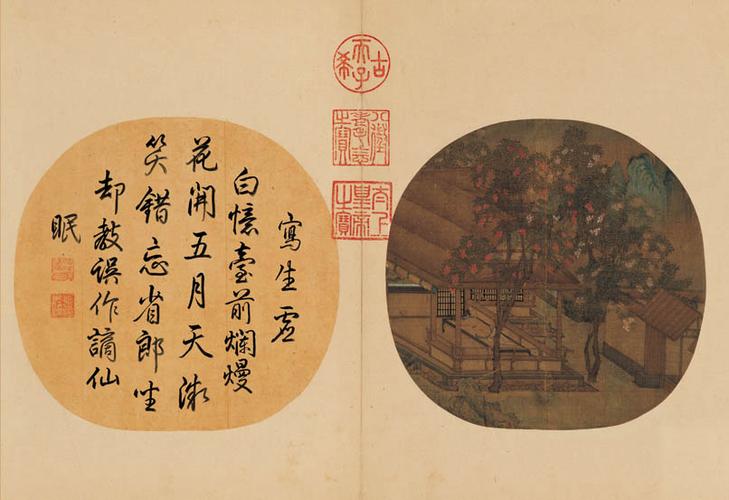 古希天子
八徵耄念之寶
太上皇帝之寶
寫生虛
白憶臺前爛熳
花開五月天微
笑錯忘省郎坐
却教誤作謫仙
眠